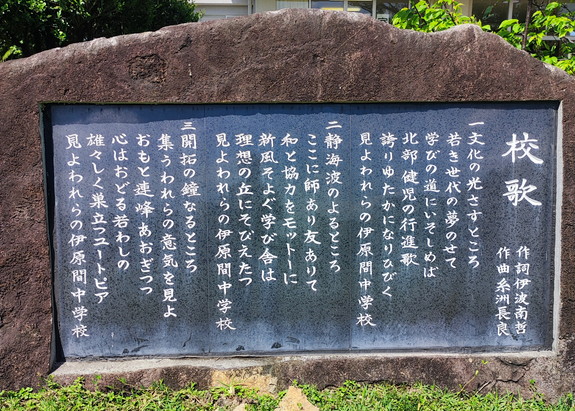 校歌
作詞伊波南哲
作曲糸洲長良
一文化の光さすところ
若き世代の夢のせて
学びの道にいそしめば
北部健児の行進歌
誇りゆたかになりひびく
見よわれらの伊原間中学校
二静海波のよるところ
ここに師あり友ありて
和と協力をモットーに
新風そよぐ学び舎は
理想の丘にそびえたつ
見よわれらの伊原間中学校
三開拓の鐘なるところ
集うわれらの意気を見よ
おもと連峰あおぎつつ
心はおどる若わしの
雄々しく巣立つユートピア
見よわれらの伊原間中学校